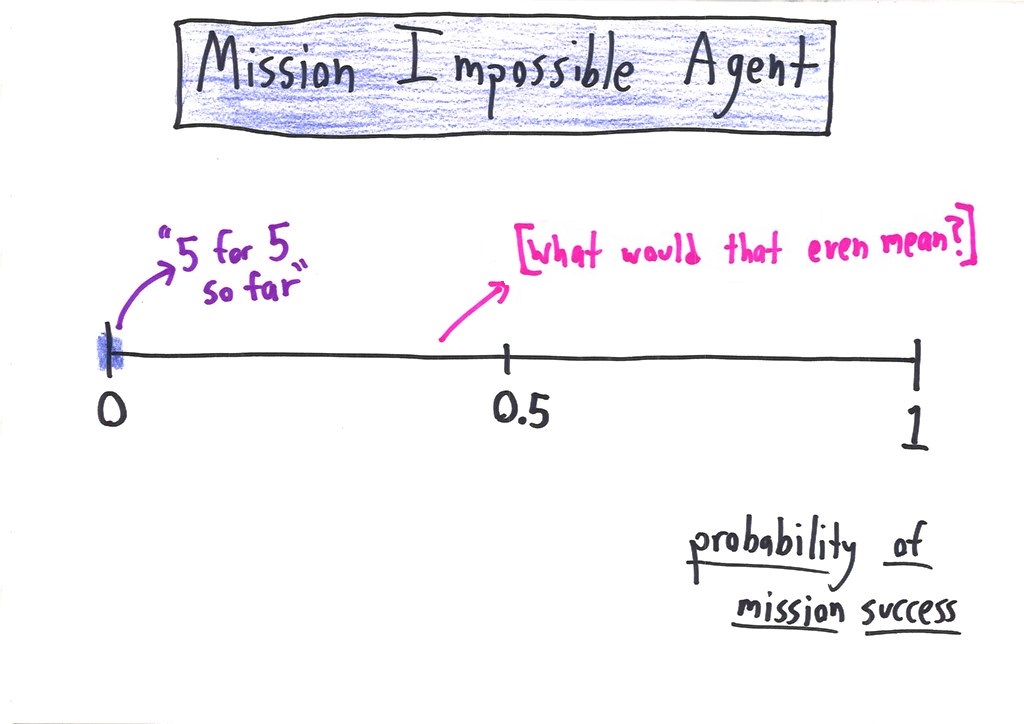 Mission Impossible Agent
"5 for 5
so far"
[what would that even mean?]
0
0.5
1
probability of
mission success